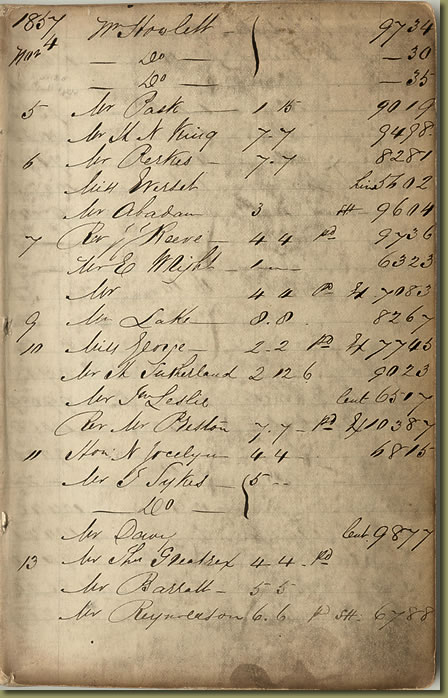 1857 Mr Hoolett — 9734
Mar 4 — Do — — 30
— Do — — 35
5 Mr Pask — 1 15 9019
Mr Th N King 7-7 9498
6 Mr Perkes — 7.7 8281
Miss 5402
Mr Abadam 3 9604
7 Rev J J Reeve — 4 4 Pd 9736
Mr E Wright — 1 — 6323
Mr 4 4 7083
9 Mr Lake — 8.8. 8267
10 Miss George — 2-2 Pd 7745
Mr Th Sutherland 2 12 6 9023
Mr Jno Leslie 6517
Rev Mr Bretton 7.7 - Pd 10387
11 Hon. N Jocelyn 4 4 - 6815
Mr J Sykes — 5 --
— Do —
Mr Davy 9877
13 Mr Thos Greatrex 4 4 . Pd
Mr Barratt — 5 5
Mr Reynoldson 6.6 6788